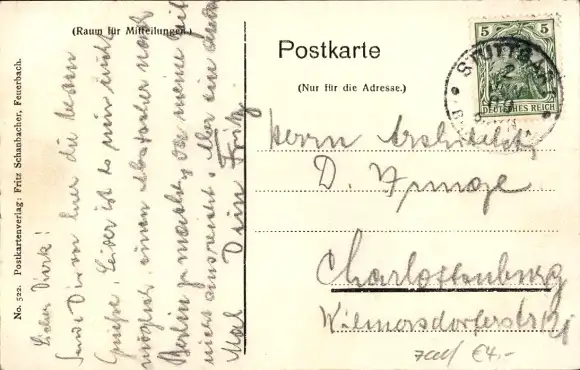 (Raum für Mitteilungen.)
Lieber Dirk!
Sende Dir von hier die besten
Grüsse. Leider ist es mir nicht
möglich, einen Abstecher nach
Berlin zu machen, da meine Zeit
nicht ausreicht. Aber ein andres
Mal Dein Fritz
No. 522. Postkartenverlag: Fritz Schanbacher, Feuerbach.
Postkarte
(Nur für die Adresse.)
5 5
DEUTSCHES REICH
STUTTGART
Herrn Architekt
D.
Charlottenburg
Wilmersdorferstr
€4.-